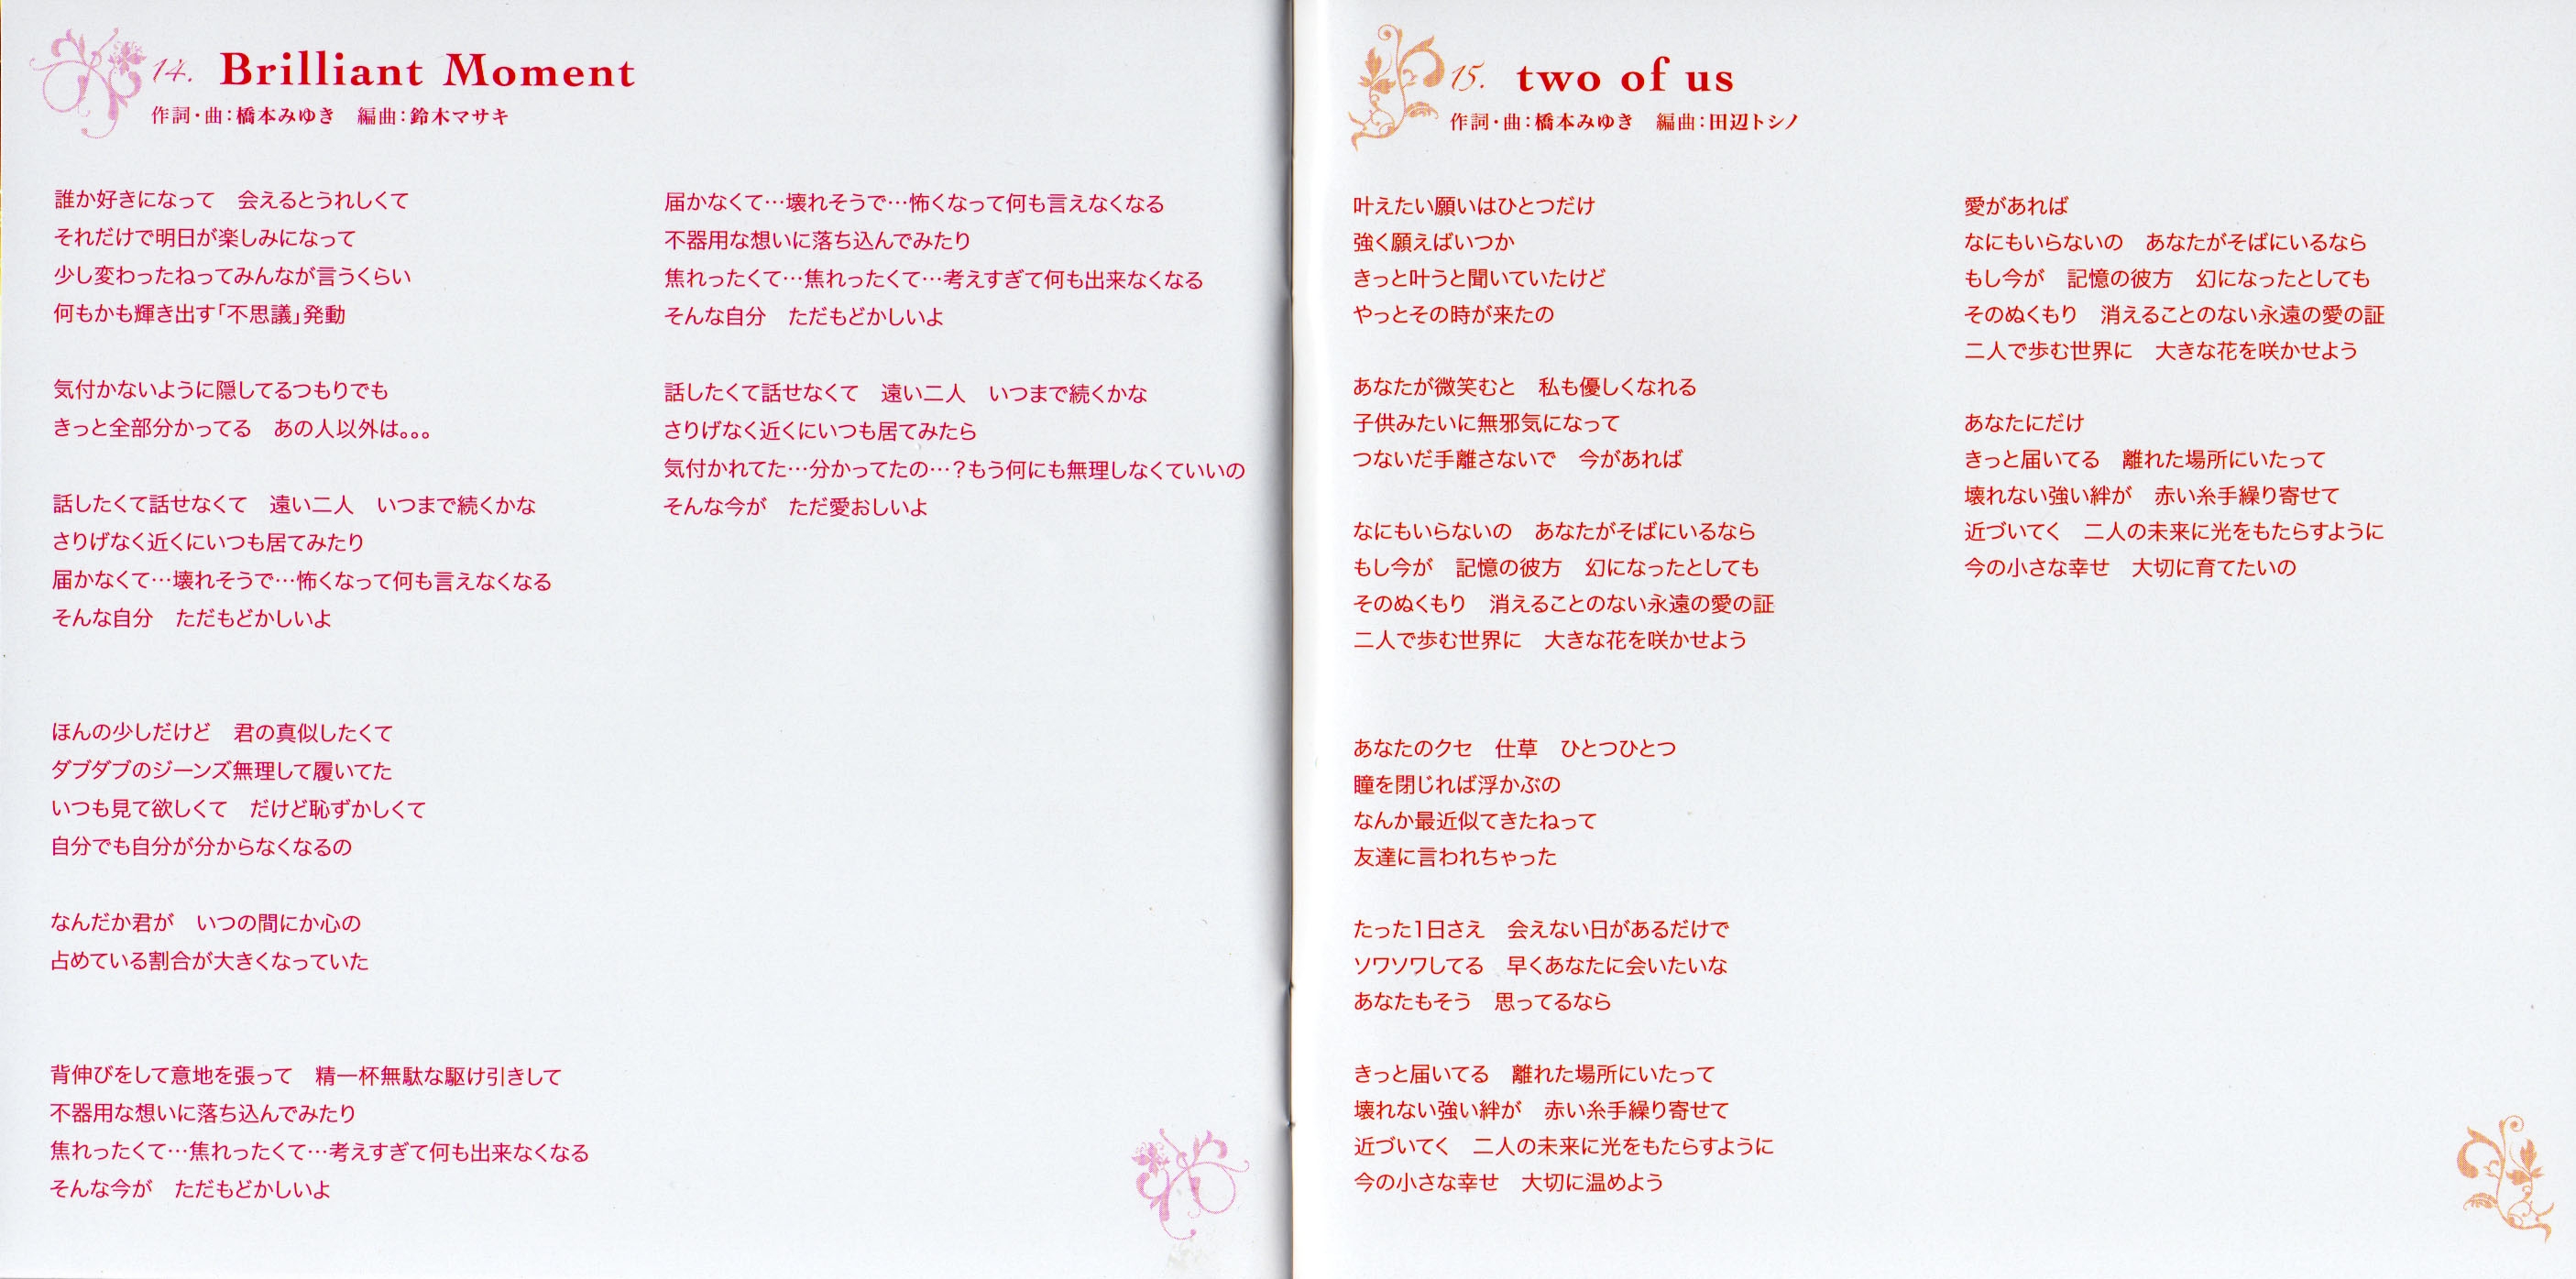 14. Brilliant Moment
作詞・曲：橋本みゆき　編曲：鈴木マサキ
誰か好きになって　会えるとうれしくて
それだけで明日が楽しみになって
少し変わったねってみんなが言うくらい
何もかも輝き出す「不思議」発動
気付かないように隠してるつもりでも
きっと全部分かってる　あの人以外は。。。
話したくて話せなくて　遠い二人　いつまで続くかな
さりげなく近くにいつも居てみたり
届かなくて…壊れそうで…怖くなって何も言えなくなる
そんな自分　ただもどかしいよ
ほんの少しだけど　君の真似したくて
ダブダブのジーンズ無理して履いてた
いつも見て欲しくて　だけど恥ずかしくて
自分でも自分が分からなくなるの
なんだか君が　いつの間にか心の
占めている割合が大きくなっていた
背伸びをして意地を張って　精一杯無駄な駆け引きして
不器用な想いに落ち込んでみたり
焦れったくて…焦れったくて…考えすぎて何も出来なくなる
そんな今が　ただもどかしいよ
届かなくて…壊れそうで…怖くなって何も言えなくなる
不器用な想いに落ち込んでみたり
焦れったくて…焦れったくて…考えすぎて何も出来なくなる
そんな自分　ただもどかしいよ
話したくて話せなくて　遠い二人　いつまで続くかな
さりげなく近くにいつも居てみたら
気付かれてた…分かってたの…？もう何にも無理しなくていいの
そんな今が　ただ愛おしいよ
15. two of us
作詞・曲：橋本みゆき　編曲：田辺トシノ
叶えたい願いはひとつだけ
強く願えばいつか
きっと叶うと聞いていたけど
やっとその時が来たの
あなたが微笑むと　私も優しくなれる
子供みたいに無邪気になって
つないだ手離さないで　今があれば
なにもいらないの　あなたがそばにいるなら
もし今が　記憶の彼方　幻になったとしても
そのぬくもり　消えることのない永遠の愛の証
二人で歩む世界に　大きな花を咲かせよう
あなたのクセ　仕草　ひとつひとつ
瞳を閉じれば浮かぶの
なんか最近似てきたねって
友達に言われちゃった
たった1日さえ　会えない日があるだけで
ソワソワしてる　早くあなたに会いたいな
あなたもそう　思ってるなら
きっと届いてる　離れた場所にいたって
壊れない強い絆が　赤い糸手繰り寄せて
近づいてく　二人の未来に光をもたらすように
今の小さな幸せ　大切に温めよう
愛があれば
なにもいらないの　あなたがそばにいるなら
もし今が　記憶の彼方　幻になったとしても
そのぬくもり　消えることのない永遠の愛の証
二人で歩む世界に　大きな花を咲かせよう
あなたにだけ
きっと届いてる　離れた場所にいたって
壊れない強い絆が　赤い糸手繰り寄せて
近づいてく　二人の未来に光をもたらすように
今の小さな幸せ　大切に育てたいの